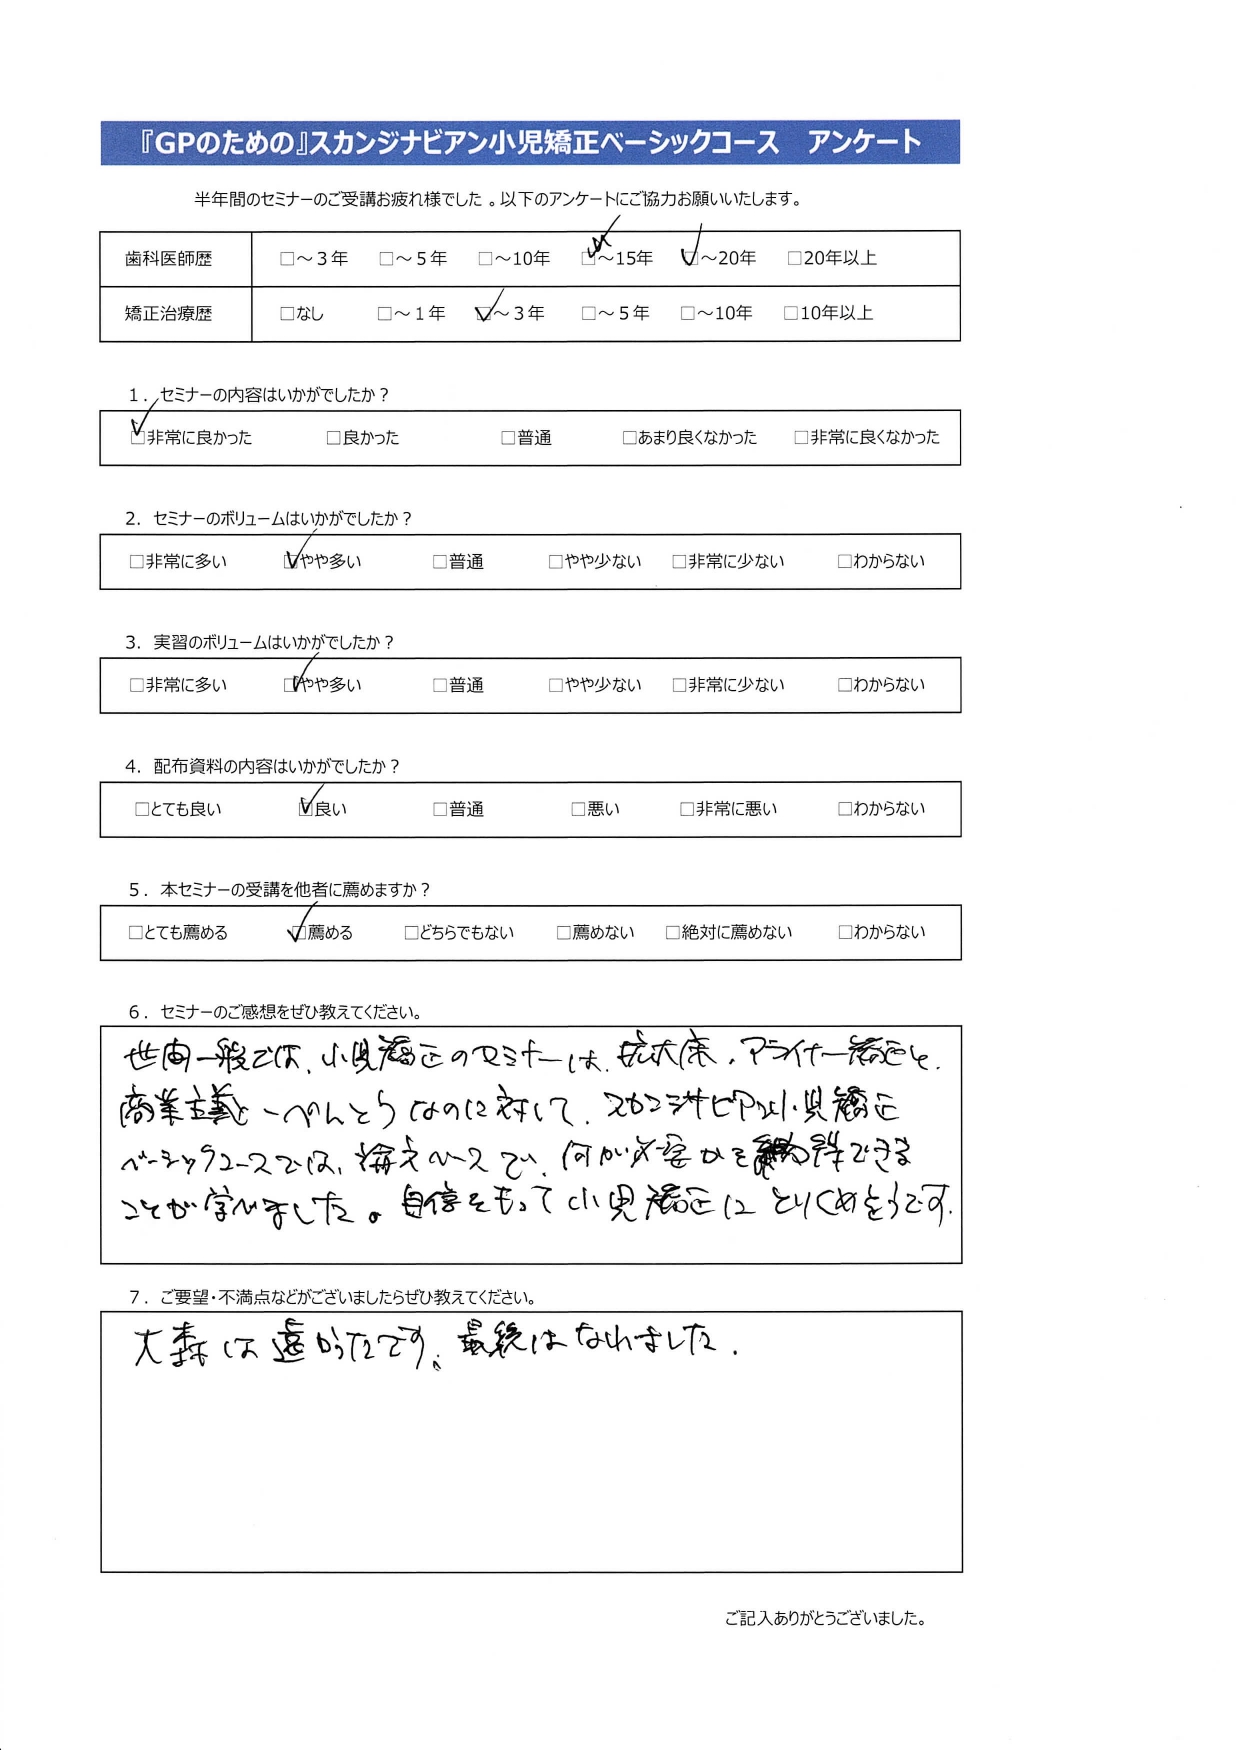 『GPのための』スカンジナビアン小児矯正ベーシックコース　アンケート
半年間のセミナーのご受講お疲れ様でした 。以下のアンケートにご協力お願いいたします。
歯科医師歴 □～３年 □～５年 □～10年 ☑～15年 ☑～20年 □20年以上
矯正治療歴 □なし □～１年 ☑～３年 □～５年 □～10年 □10年以上
１．セミナーの内容はいかがでしたか？
☑非常に良かった □良かった □普通 □あまり良くなかった □非常に良くなかった
2．セミナーのボリュームはいかがでしたか？
□非常に多い ☑やや多い □普通 □やや少ない □非常に少ない □わからない
3．実習のボリュームはいかがでしたか？
□非常に多い ☑やや多い □普通 □やや少ない □非常に少ない □わからない
4．配布資料の内容はいかがでしたか？
□とても良い ☑良い □普通 □悪い □非常に悪い □わからない
５．本セミナーの受講を他者に薦めますか？
□とても薦める ☑薦める □どちらでもない □薦めない □絶対に薦めない □わからない
６．セミナーのご感想をぜひ教えてください。
世間一般では、小児矯正のセミナーは、拡大床、アライナー矯正と、
商業主義と一ぺんとうなのに対して、スカンジナビアン小児矯正
ベーシックコースでは、論文ベースで、何が必要かを納得できる
ことが学べました。自信をもって小児矯正にとりくめそうです。
７．ご要望・不満点などがございましたらぜひ教えてください。
大森は遠かったです。最後はなれました。
ご記入ありがとうございました。